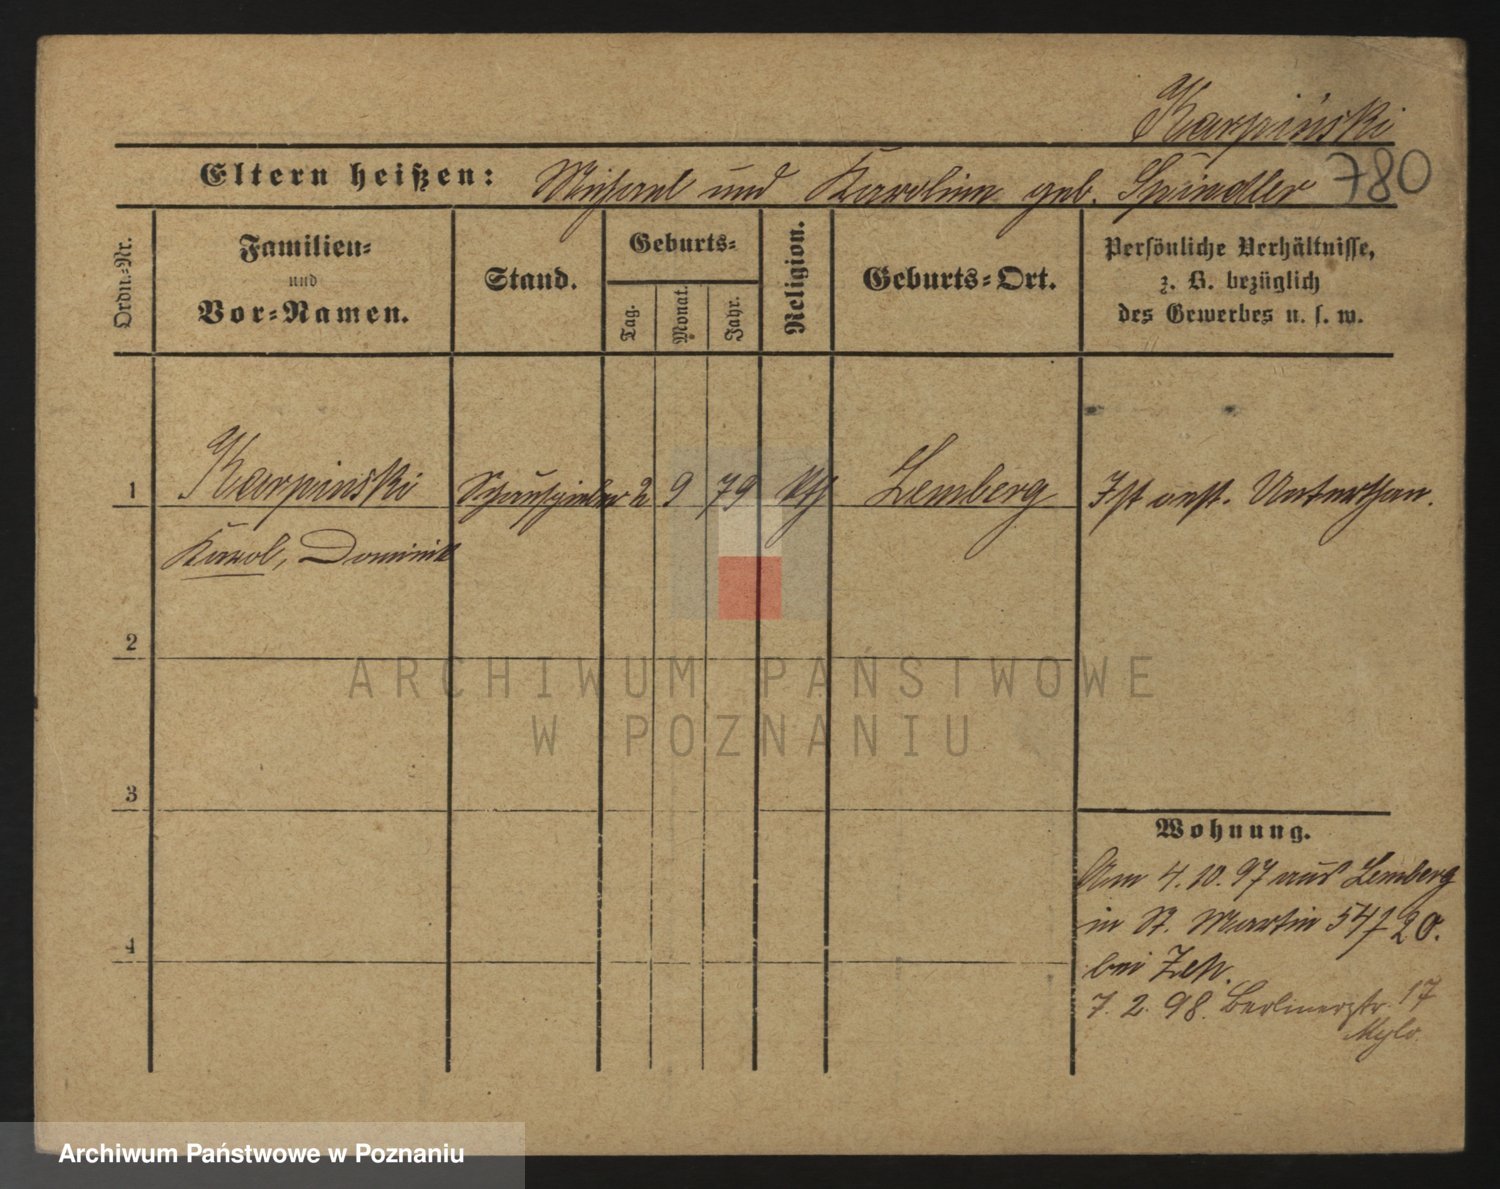 Karpiński
Eltern heißen: Michael und Karoline geb. Spindler 780
Ordn.-Nr.
Familien-
und
Vor-Namen.
Stand.
Geburts-
Tag.
Monat.
Jahr.
Religion.
Geburts-Ort.
Persönliche Verhältnisse,
z. B. bezüglich
des Gewerbes u. s. w.
1 Karpinski Schauspieler 2 9 79 kth Lemberg Ist östr. Unterthan.
Karol, Dominik
2
3
4
Wohnung.
Am 4.10.97 aus Lemberg
in St. Martin 54/ 20.
bei
7.2.98. Berlinerstr. 17
Mylo
ARCHIWUM PAŃSTWOWE
W POZNANIU
Archiwum Państwowe w Poznaniu